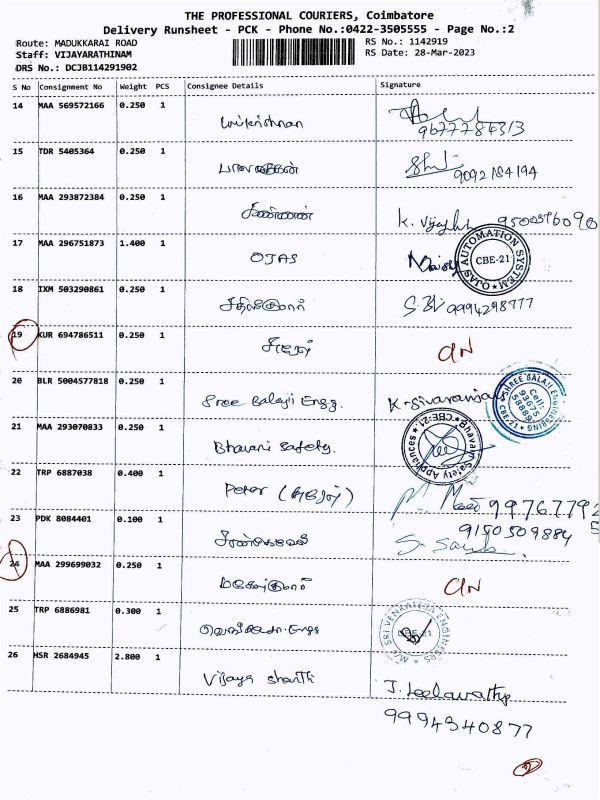 THE PROFESSIONAL COURIERS, Coimbatore
Delivery Runsheet - PCK - Phone No.:0422-3505555 - Page No.:2
Route: MADUKKARAI ROAD
RS No.: 1142919
Staff: VIJAYARATHINAM
RS Date: 28-Mar-2023
DRS No.: DCJB114291902
S No Consignment No Weight PCS Consignee Details Signature
14 MAA 569572166 0.250 1
9677784313
15 TDR 5405364 0.250 1
9092184194
16 MAA 293872384 0.250 1 K.
17 MAA 296751873 1.400 1 OJAS
OJAS AUTOMATION SYSTEM
CBE-21
18 IXM 503290861 0.250 1 9994298777
19 KUR 694786511 0.250 1
20 BLR 5004577818 0.250 1 Sree Balaji Engg. K-Sivaranjani
SHREE BALAJI ENGINEERING
Cell:
93675
58889
CBE-21
21 MAA 293070833 0.250 1 Bhavani Safety.
Bhavani Safety Appliances * CBE-21 *
22 TRP 6887038 0.400 1 Peter
23 PDK 8084401 0.100 1 9150509884
S.
24 MAA 299699032 0.250 1 மகேஷ்குமார்
25 TRP 6886981 0.300 1
M/s SRI VENKATESA ENGINEERS
CBE-21
26 HSR 2684945 2.800 1 Vijaya Shanthi J. Leelavathy
9994340877